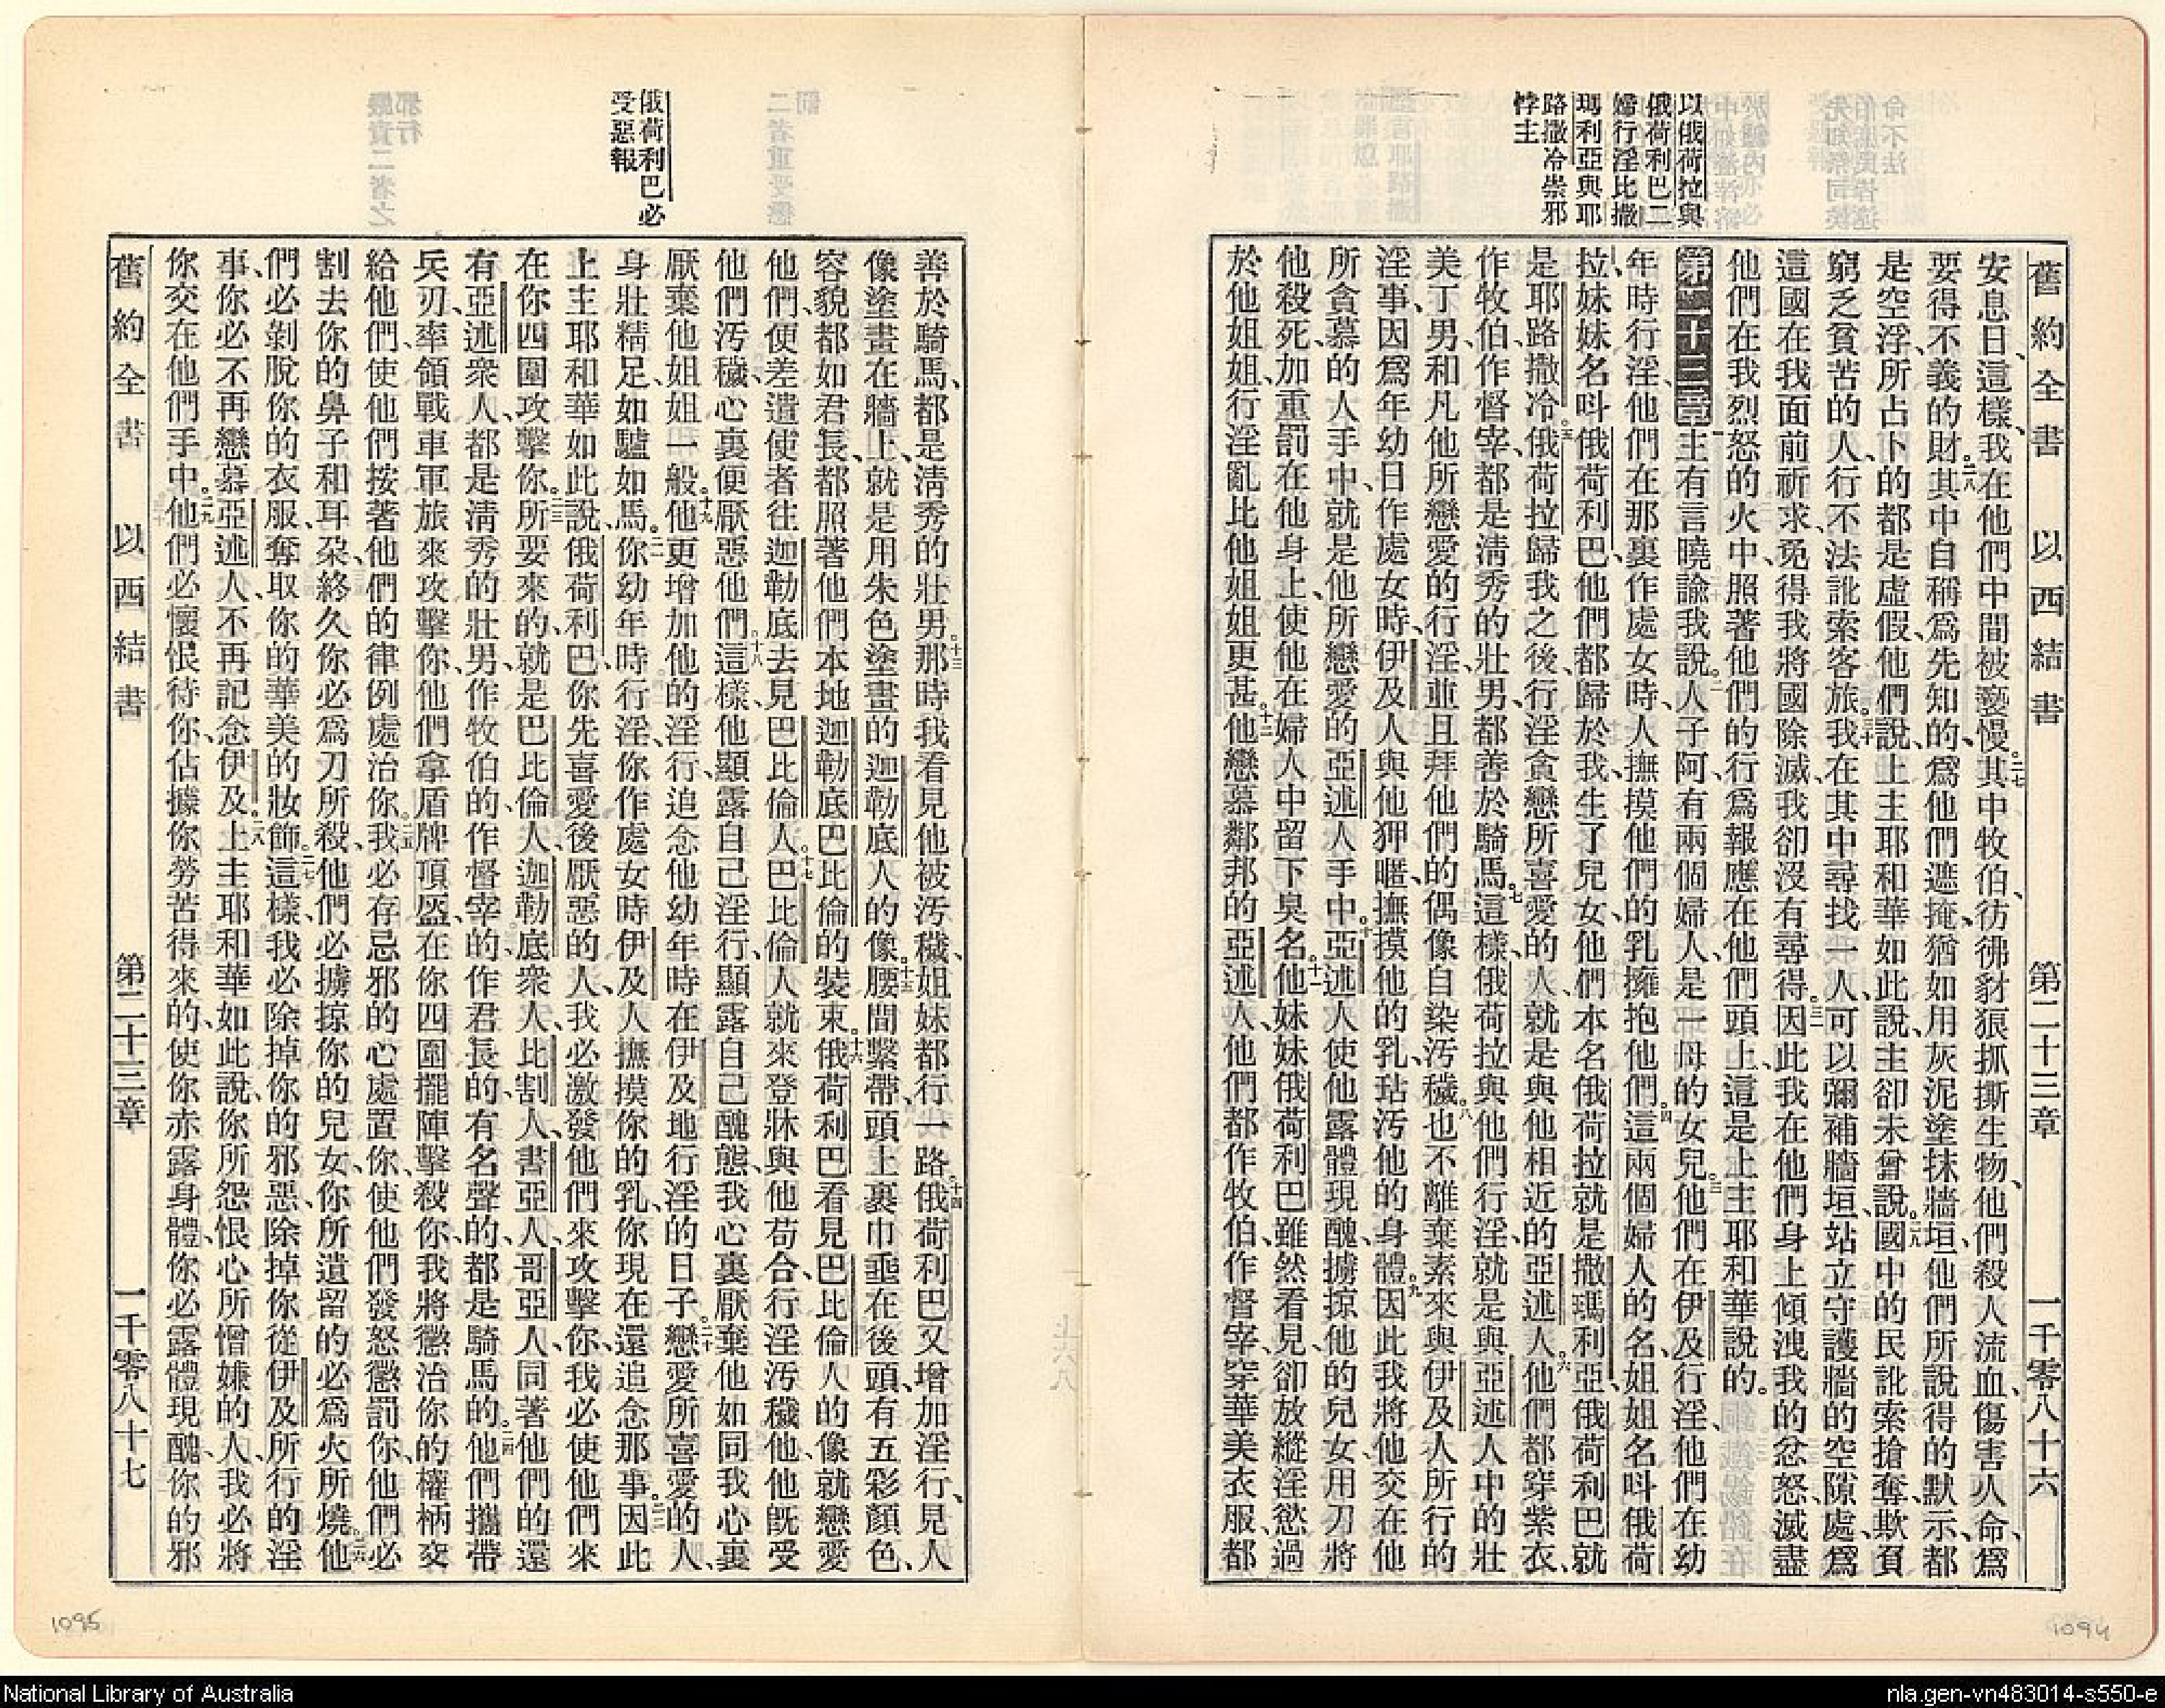 舊約全書 以西結書 第二十三章 一千零八十六
安息日、這樣、我在他們中間被褻慢。二七其中牧伯、彷彿豺狼抓撕生物、他們殺人流血、傷害人命、爲
要得不義的財。二八其中自稱爲先知的、爲他們遮掩、猶如用灰泥塗抹牆垣、他們所說得的默示、都
是空浮、所占卜的都是虛假、他們說、上主耶和華如此說、主卻未曾說。二九國中的民訛索搶奪、欺負
窮乏貧苦的人、行不法訛索客旅。三十我在其中尋找一人、可以彌補牆垣、站立守護牆的空隙處、爲
這國在我面前祈求、免得我將國除滅、我卻沒有尋得。三一因此我在他們身上傾洩我的忿怒、滅盡
他們在我烈怒的火中、照著他們的行爲報應在他們頭上、這是上主耶和華說的。
以俄荷拉與
俄荷利巴二
婦行淫比撒
瑪利亞與耶
路撒冷崇邪
悖主
第二十三章主有言曉諭我說。二人子阿、有兩個婦人、是一母的女兒。三他們在伊及行淫、他們在幼
年時行淫、他們在那裏作處女時、人撫摸他們的乳、擁抱他們。四這兩個婦人的名、姐姐名叫俄荷
拉、妹妹名叫俄荷利巴、他們都歸於我、生了兒女、他們本名俄荷拉就是撒瑪利亞、俄荷利巴就
是耶路撒冷。五俄荷拉歸我之後、行淫貪戀所喜愛的人、就是與他相近的亞述人。六他們都穿紫衣、
作牧伯、作督宰、都是淸秀的壯男、都善於騎馬。七這樣、俄荷拉與他們行淫、就是與亞述人中的壯
美丁男、和凡他所戀愛的行淫、並且拜他們的偶像自染汚穢。八也不離棄素來與伊及人所行的
淫事、因爲年幼日作處女時、伊及人與他狎暱、撫摸他的乳、玷汚他的身體。九因此我將他交在他
所貪慕的人手中、就是他所戀愛的亞述人手中。十亞述人使他露體現醜、擄掠他的兒女、用刀將
他殺死、加重罰在他身上、使他在婦人中留下臭名。十一他妹妹俄荷利巴雖然看見、卻放縱淫慾過
於他姐姐、行淫亂比他姐姐更甚。十二他戀慕鄰邦的亞述人、他們都作牧伯、作督宰、穿華美衣服、都
俄荷利巴必
受惡報
善於騎馬、都是淸秀的壯男。十三那時我看見他被汚穢、姐妹都行一路。十四俄荷利巴又增加淫行、見人
像塗畫在牆上、就是用朱色塗畫的迦勒底人的像。十五腰間繫帶、頭上裹巾垂在後頭、有五彩顏色、
容貌都如君長、都照著他們本地迦勒底巴比倫的裝束。十六俄荷利巴看見巴比倫人的像、就戀愛
他們、便差遣使者往迦勒底去見巴比倫人。十七巴比倫人就來登牀與他苟合、行淫汚穢他、他旣受
他們汚穢、心裏便厭惡他們。十八這樣、他顯露自己淫行、顯露自己醜態、我心裏厭棄他、如同我心裏
厭棄他姐姐一般。十九他更增加他的淫行、追念他幼年時在伊及地行淫的日子。二十戀愛所喜愛的人、
身壯精足、如驢如馬。二一你幼年時行淫、你作處女時伊及人撫摸你的乳、你現在還追念那事。二二因此
上主耶和華如此說、俄荷利巴、你先喜愛後厭惡的人、我必激發他們來攻擊你、我必使他們來
在你四圍攻擊你。二三所要來的、就是巴比倫人、迦勒底衆人、比割人、書亞人、哥亞人、同著他們的還
有亞述衆人、都是淸秀的壯男、作牧伯的、作督宰的、作君長的、有名聲的、都是騎馬的。二四他們攜帶
兵刃、率領戰車軍旅來攻擊你、他們拿盾牌頂盔在你四圍擺陣、擊殺你、我將懲治你的權柄交
給他們、使他們按著他們的律例處治你。二五我必存忌邪的心處置你、使他們發怒懲罰你、他們必
割去你的鼻子和耳朶、終久你必爲刀所殺、他們必擄掠你的兒女、你所遺留的必爲火所燒。二六他
們必剝脫你的衣服、奪取你的華美的妝飾。二七這樣、我必除掉你的邪惡、除掉你從伊及所行的淫
事、你必不再戀慕亞述人、不再記念伊及。二八上主耶和華如此說、你所怨恨心所憎嫌的人、我必將
你交在他們手中。二九他們必懷恨待你、佔據你勞苦得來的、使你赤露身體、你必露體現醜、你的邪
舊約全書 以西結書 第二十三章 一千零八十七
1095
1094
National Library of Australia
nla.gen-vn483014-s550-e